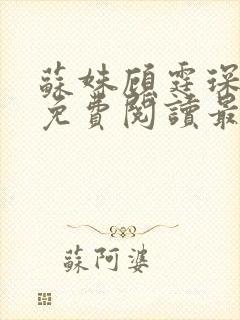 蘇妹顧霆琛
免費閱讀最
蘇阿婆